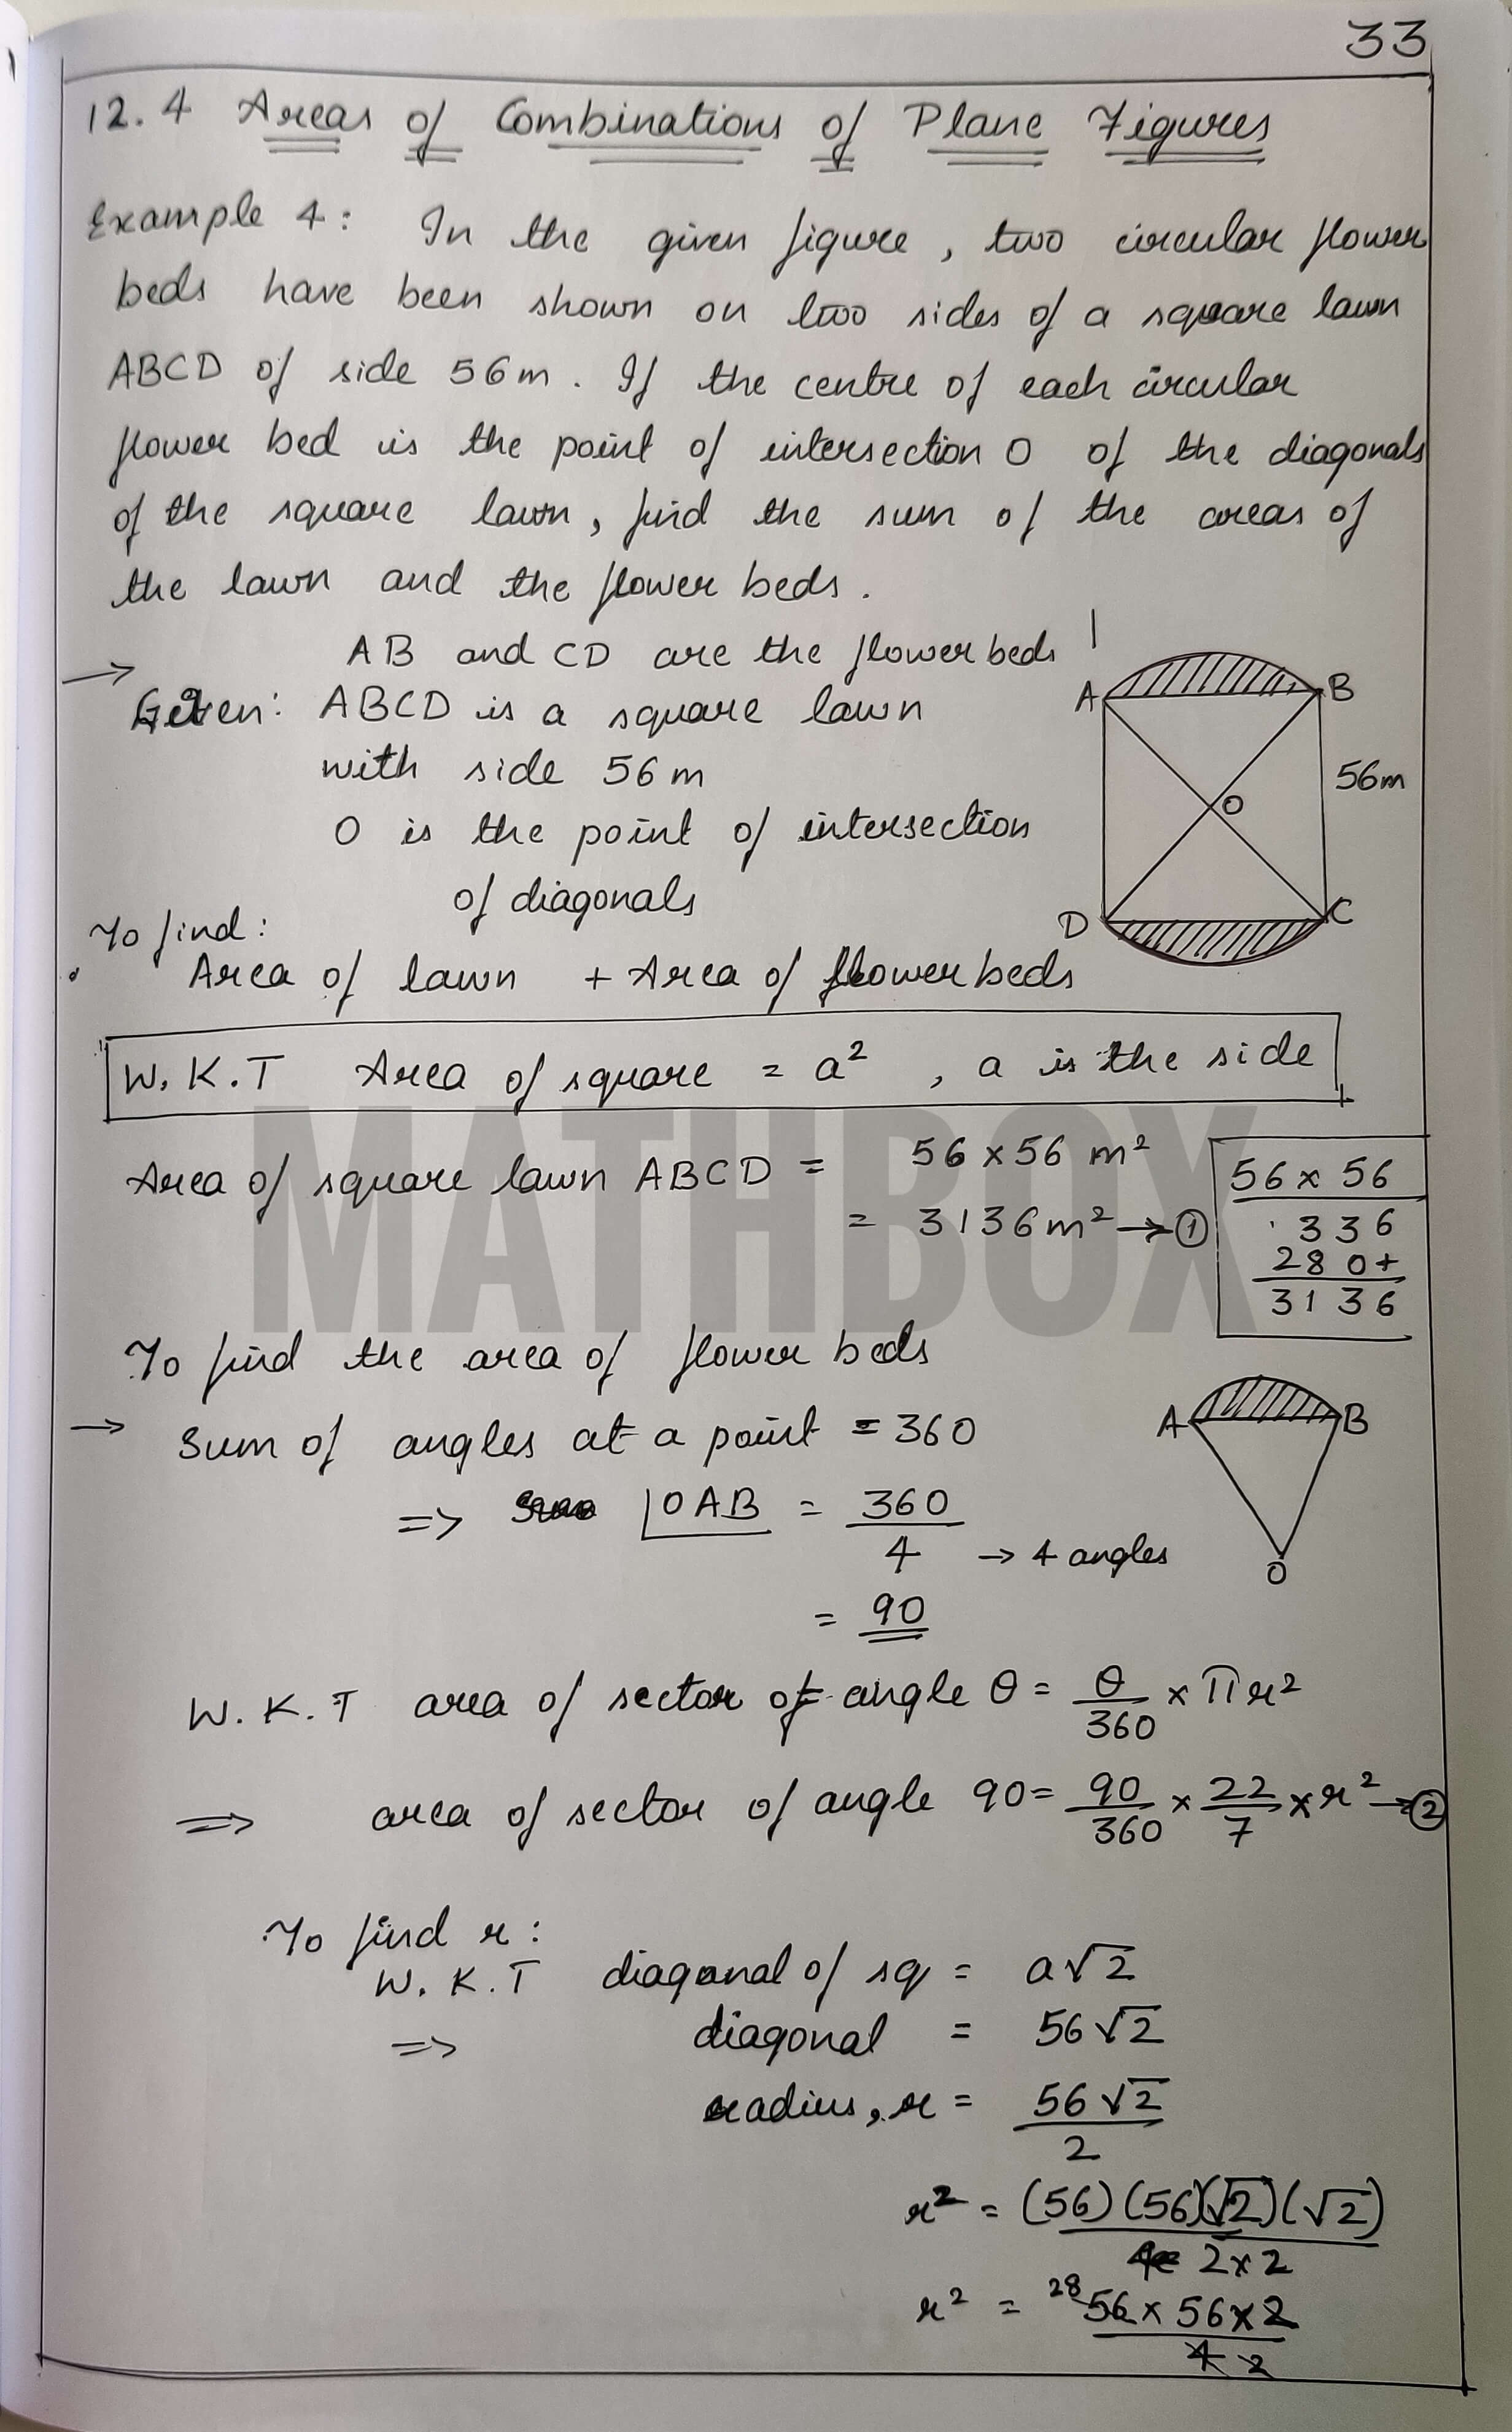 33
12.4 Areas of Combinations of Plane Figures
Example 4: In the given figure, two circular flower
beds have been shown on two sides of a square lawn
ABCD of side 56m. If the centre of each circular
flower bed is the point of intersection O of the diagonals
of the square lawn, find the sum of the areas of
the lawn and the flower beds.
AB and CD are the flower beds
→
Given: ABCD is a square lawn
with side 56 m
O is the point of intersection
of diagonals
A B
56m
O
D C
To find:
Area of lawn + Area of flower beds
W.K.T Area of square = a², a is the side
MATHBOX
Area of square lawn ABCD = 56 × 56 m²
= 3136m² → ①
56 × 56
336
280+
3136
To find the area of flower beds
→ Sum of angles at a point = 360
A B
O
=> ∠OAB = 360/4 → 4 angles
= 90
W.K.T area of sector of angle θ = θ/360 × πr²
=> area of sector of angle 90 = 90/360 × 22/7 × r² → ②
To find r:
W.K.T diagonal of sq = a√2
=> diagonal = 56√2
radius, r = 56√2/2
r² = (56)(56)(√2)(√2)/2×2
r² = 28 56 × 56 × 2/4 2